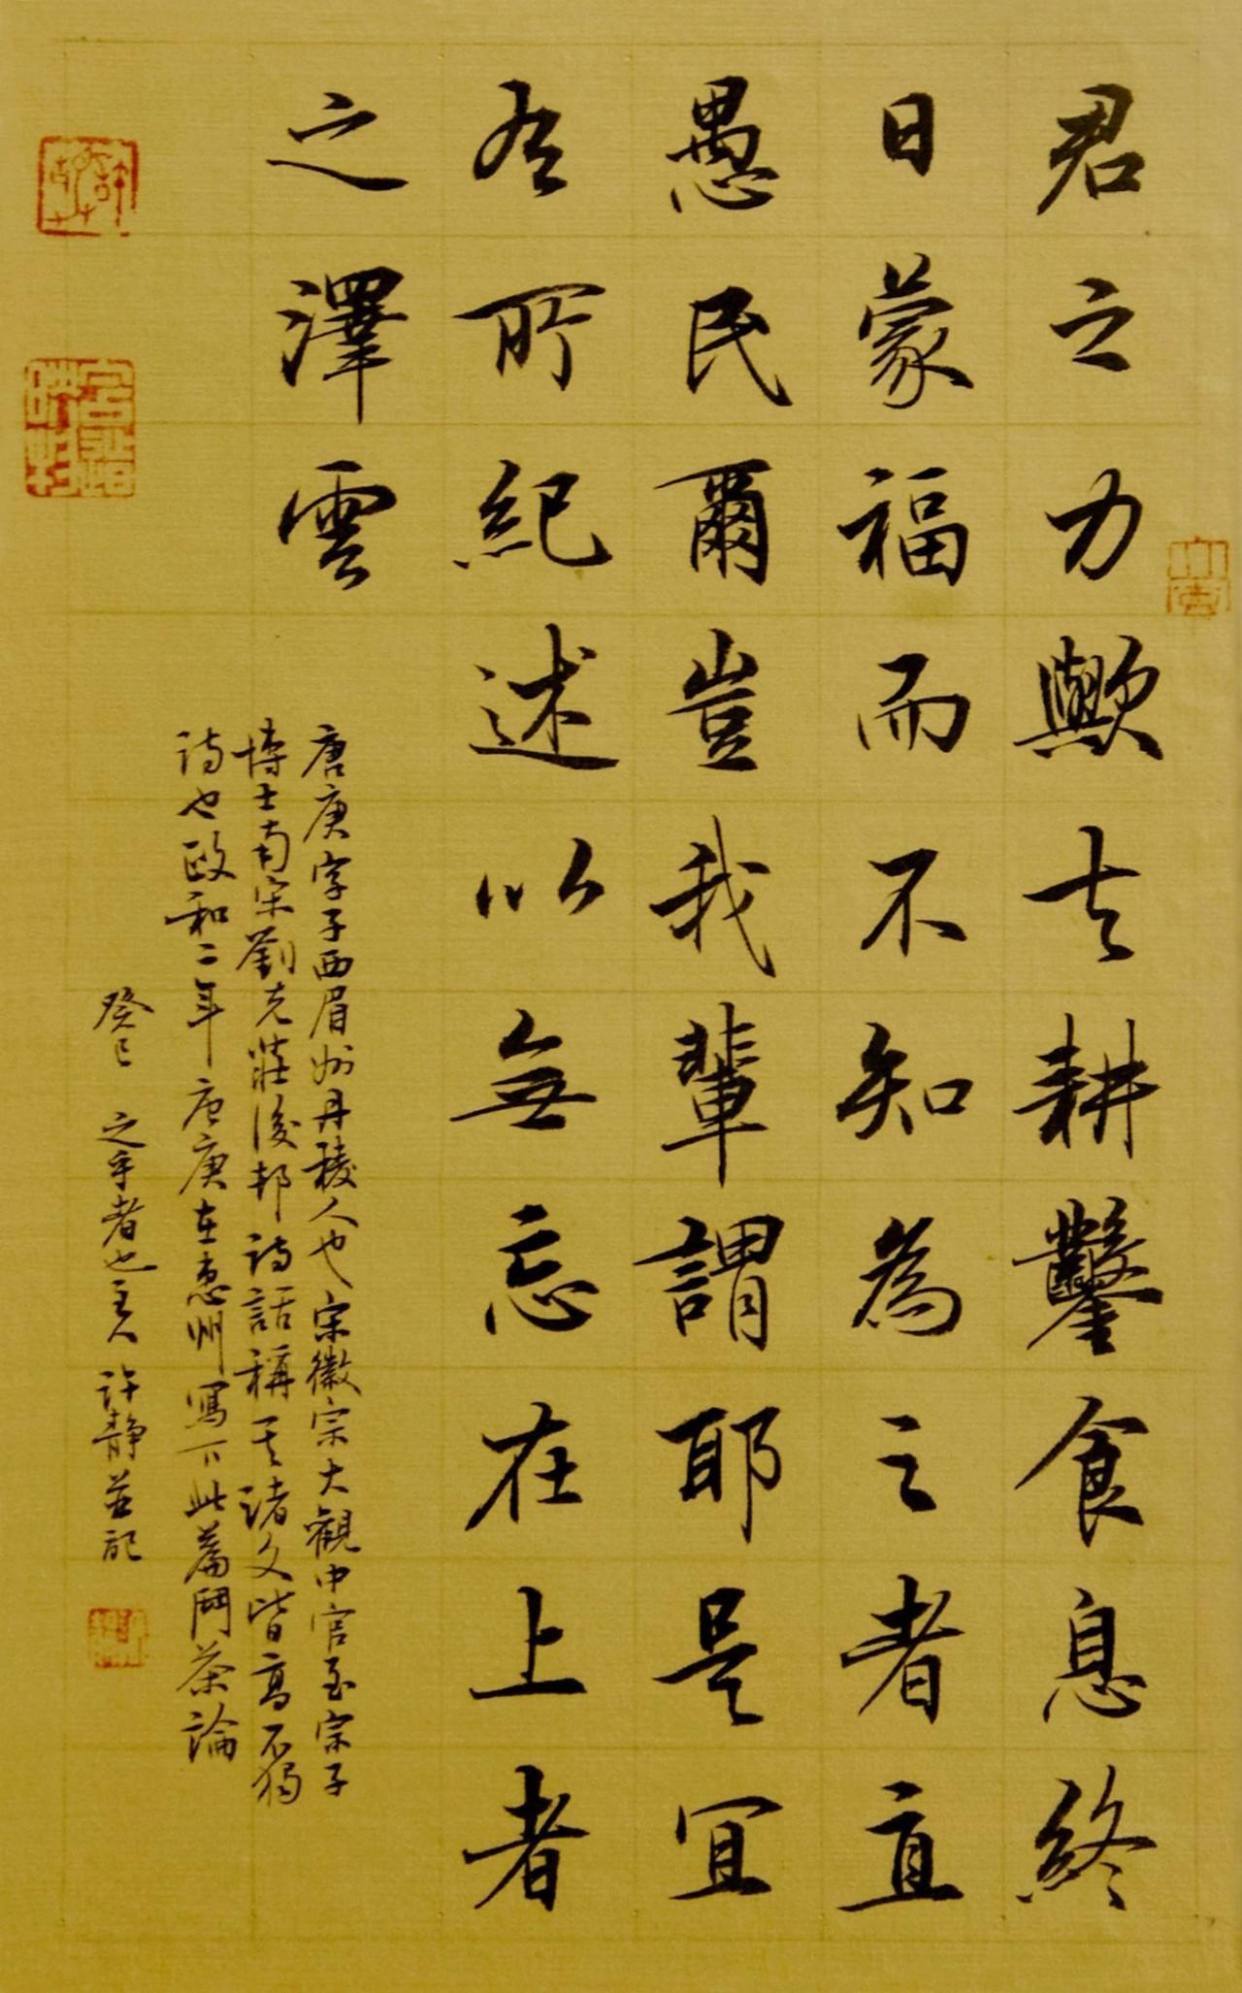 君之力歟夫耕鑿食息終
日蒙福而不知為之者直
愚民爾豈我輩謂耶是宜
有所紀述以無忘在上者
之澤雲
唐庚字子西眉州丹稜人也宋徽宗大觀中官至宗子
博士南宋劉克莊後邨詩話稱其諸文皆高不獨
詩也政和二年唐庚在惠州寫下此篇鬥茶論
癸巳 之乎者也主人 許靜並記